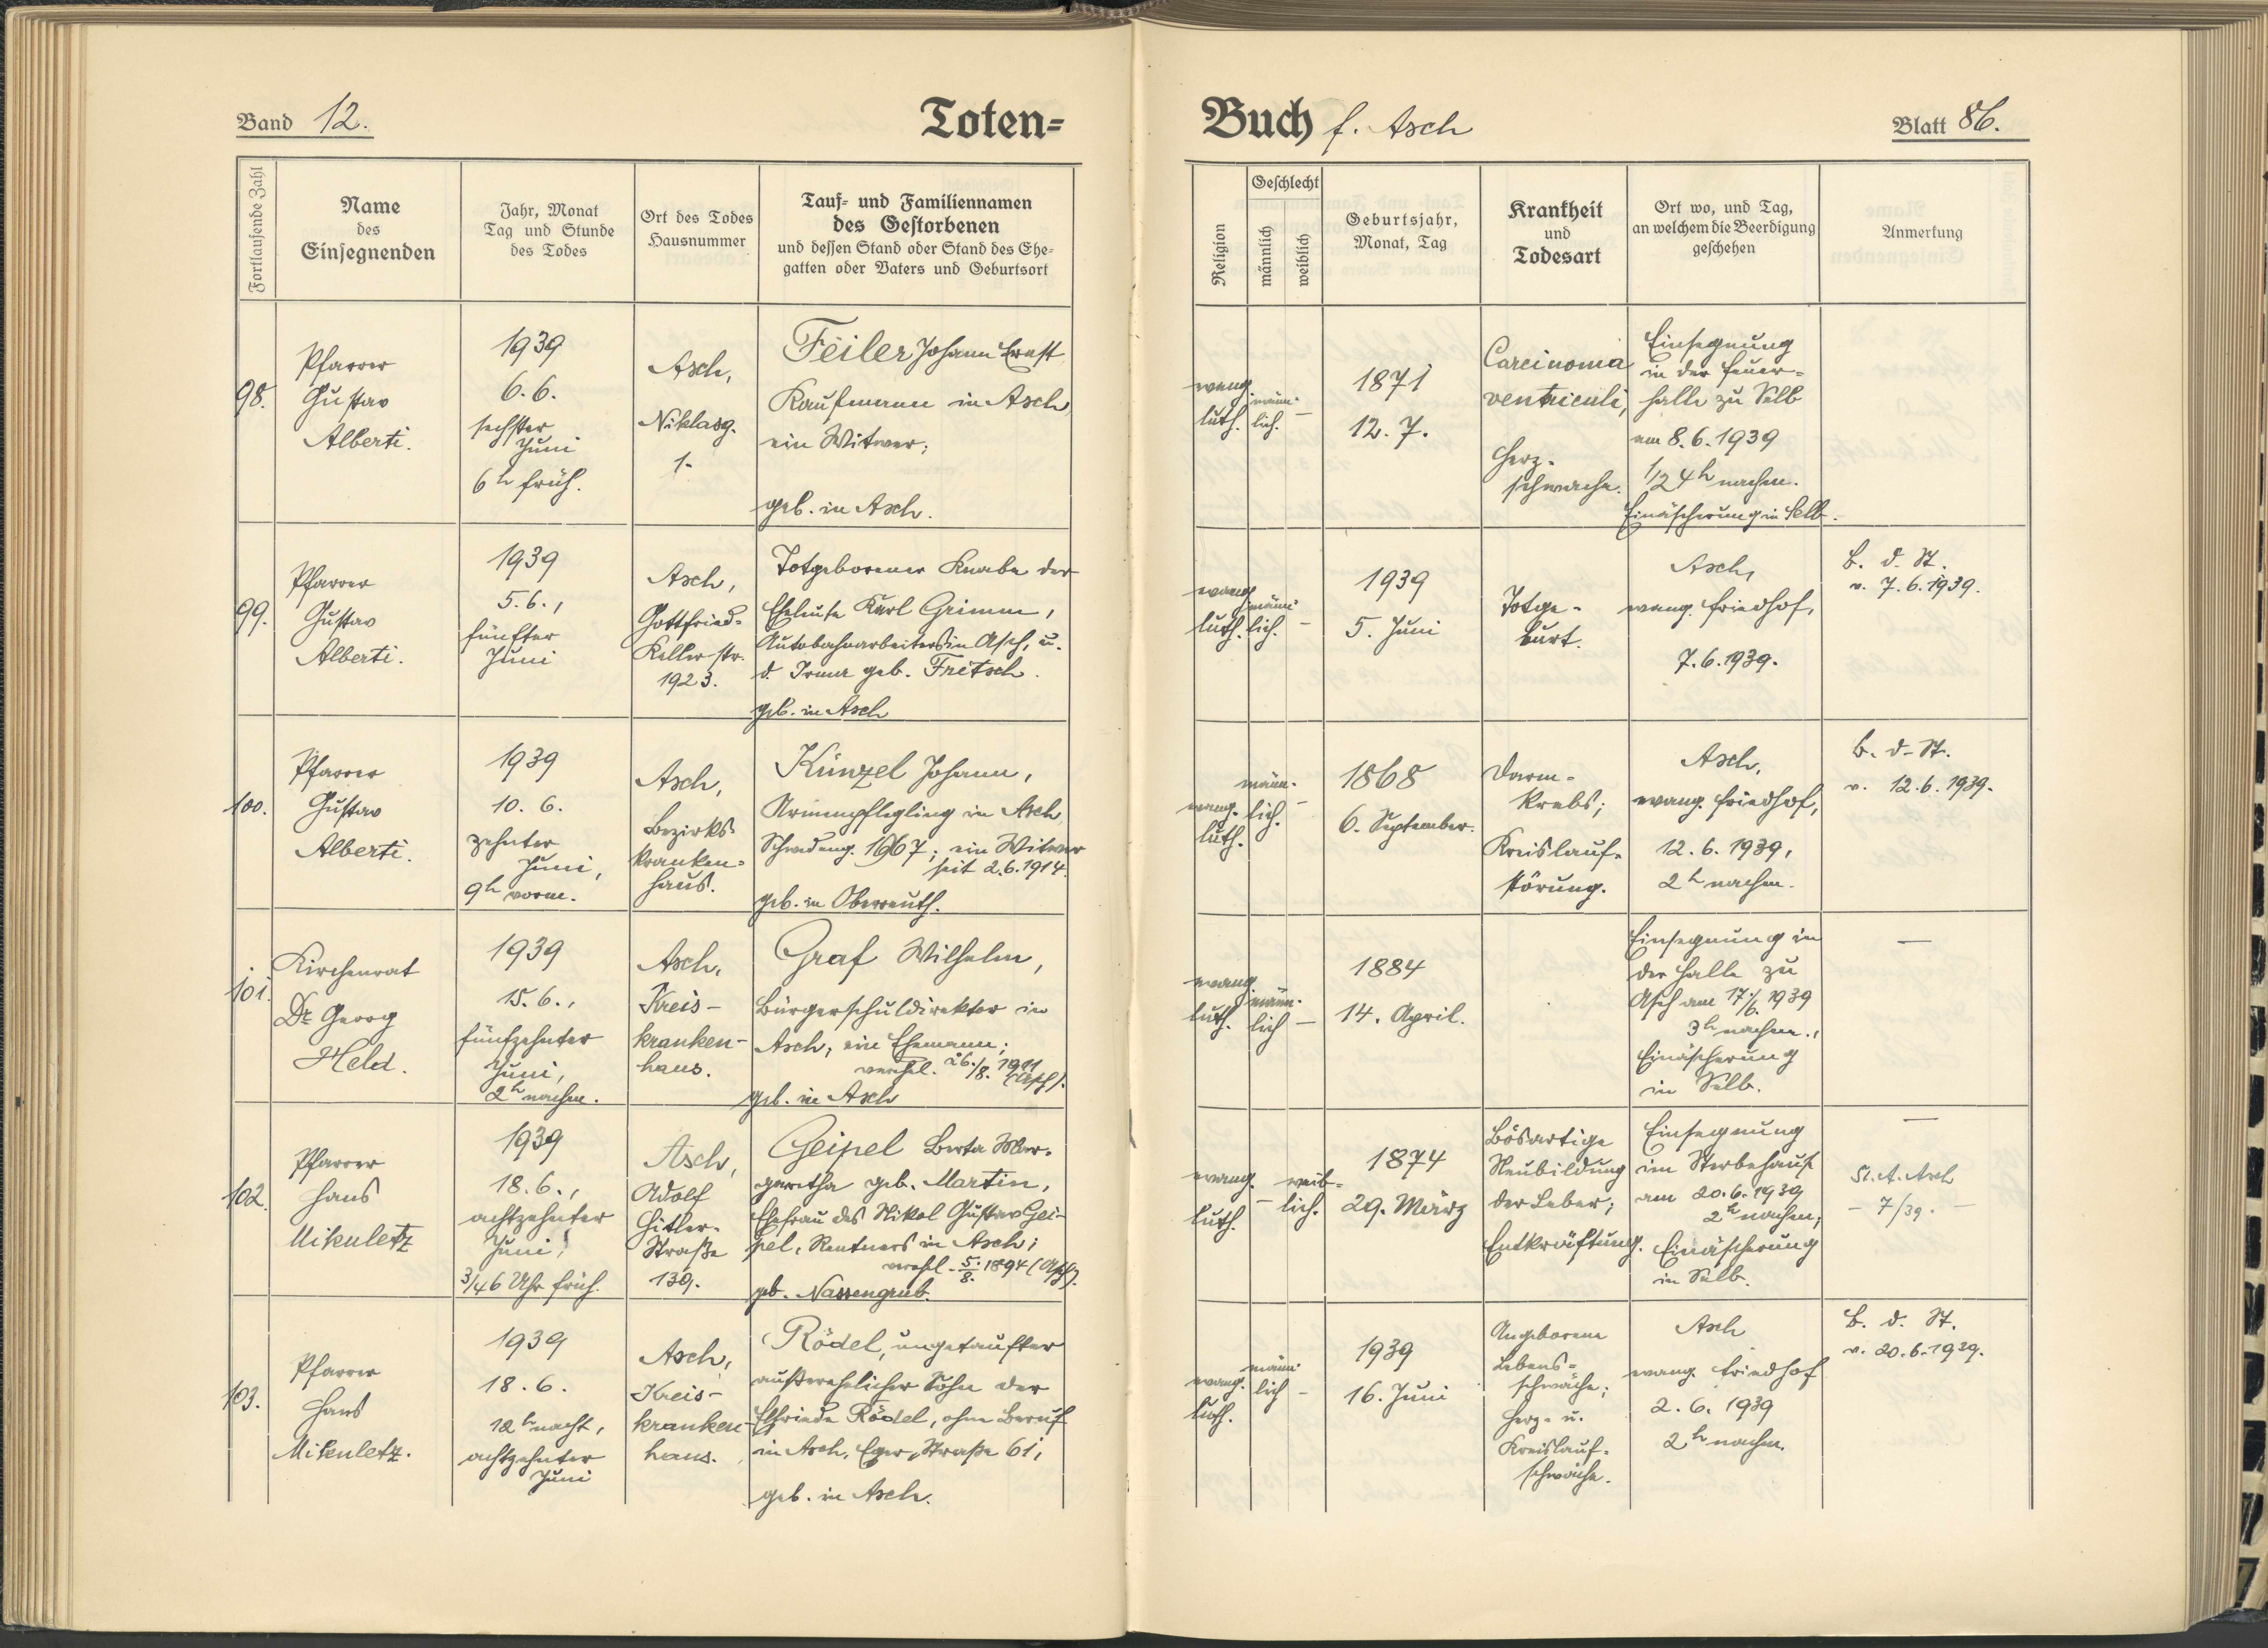 Band 12.
Toten=
Buch f. Asch
Blatt 86.
Fortlaufende Zahl
Name
des
Einsegnenden
Jahr, Monat
Tag und Stunde
des Todes
Ort des Todes
Hausnummer
Tauf- und Familiennamen
des Gestorbenen
und dessen Stand oder Stand des Ehe-
gatten oder Vaters und Geburtsort
Religion
Geschlecht
männlich
weiblich
Geburtsjahr,
Monat, Tag
Krankheit
und
Todesart
Ort wo, und Tag,
an welchem die Beerdigung
geschehen
Anmerkung
98.
Pfarrer
Gustav
Alberti.
1939
6. 6.
sechster
Juni
6h früh.
Asch,
Niklasg.
1.
Feiler Johann Ernst,
Kaufmann in Asch,
ein Witwer;
geb. in Asch.
evang.
luth.
männ-
lich.
–
1871
12. 7.
Carcinoma
ventriculi,
Herz-
schwäche.
Einsegnung
in der Feuer-
halle zu Selb
am 8. 6. 1939
1/2 4h nachm.
Einäscherung in Selb.
99.
Pfarrer
Gustav
Alberti.
1939
5. 6.,
fünfter
Juni
Asch,
Gottfried-
Keller str.
1923.
Totgeborener Knabe der
Eheleute Karl Grimm,
Autobahnarbeiters in Asch, u.
d. Irma geb. Fritsch.
geb. in Asch
evang.
luth.
männ-
lich.
–
1939
5. Juni
Totge-
burt.
Asch,
evang. Friedhof,
7. 6. 1939.
B. d. St.
v. 7. 6. 1939.
100.
Pfarrer
Gustav
Alberti.
1939
10. 6.
zehnter
Juni,
9h vorm.
Asch,
Bezirks-
kranken-
haus.
Künzel Johann,
Armenpflegling in Asch,
1967; ein Witwer
seit 2. 6. 1914.
geb. in Oberreuth.
evang.
luth.
männ-
lich.
–
1868
6. September.
Darm-
krebs;
Kreislauf-
störung.
Asch,
evang. Friedhof,
12. 6. 1939,
2h nachm.
B. d. St.
v. 12. 6. 1939.
101.
Kirchenrat
Dr. Georg
Held.
1939
15. 6.,
fünfzehnter
Juni,
2h nachm.
Asch,
Kreis-
kranken-
haus.
Graf Wilhelm,
Bürgerschuldirektor in
Asch; ein Ehemann;
verehel. 26./8. 1911
(Asch).
geb. in Asch
evang.
luth.
männ-
lich
–
1884
14. April.
Einsegnung in
der Halle zu
Asch am 17./6. 1939
3h nachm.,
Einäscherung
in Selb.
—
102.
Pfarrer
Hans
Mikuletz
1939
18. 6.,
achtzehnter
Juni,
3/4 6 Uhr früh.
Asch,
Adolf
Hitler-
Straße
139.
Geipel Berta Mar-
garetha geb. Martin,
Ehefrau des Nikol Gustav Gei-
pel, Rentners in Asch;
verehl. 5./8. 1894 (Asch).
geb. Nassengrub.
evang.
luth.
–
weib-
lich.
1874
29. März
Bösartige
Neubildung
der Leber;
Entkräftung.
Einsegnung
im Sterbehause
am 20. 6. 1939
2h nachm;
Einäscherung
in Selb.
—
St. A. Asch
– 7/39. –
103.
Pfarrer
Hans
Mikuletz.
1939
18. 6.
12h nacht,
achtzehnter
Juni
Asch,
Kreis-
kranken-
haus.
Rödel, ungetaufter
außerehelicher Sohn der
Elfriede Rödel, ohne Beruf
in Asch, Eger, Straße 61,
geb. in Asch.
evang.
luth.
männ-
lich
–
1939
16. Juni
Angeborene
Lebens-
schwäche;
Herz- u.
Kreislauf-
schwäche.
Asch
evang. Friedhof
2. 6. 1939
2h nachm.
B. d. St.
v. 20. 6. 1939.